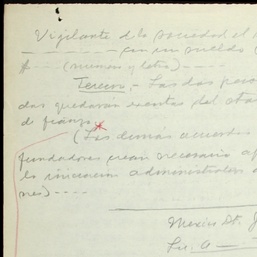 Vigilante de la sociedad el
- - - - - - - - con un sueldo
$ --- (número y letra) - - - -
Tercero.- Las dos per
das quedarán exentas del
de fianza.
(Las demás acuerdos
fundadores crean necesario
la iniciación administrativa
nes) - - - -
Mexico D.F.
Lic. A